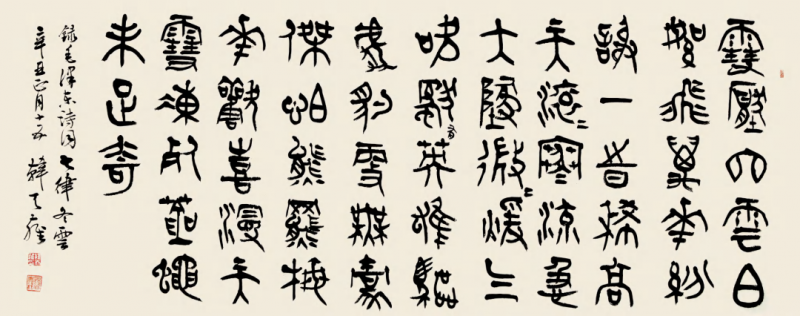 雪壓冬雲白
絮飛萬花紛
謝一時稀高
天滾〻寒流急
大地微〻煖气
吹獨有英雄驅
虎豹更無豪
傑怕熊羆梅
花歡喜漫天
雪凍死蒼蠅
未足奇
錄毛澤東詩詞七律冬雲
辛丑正月十五 韓天雍